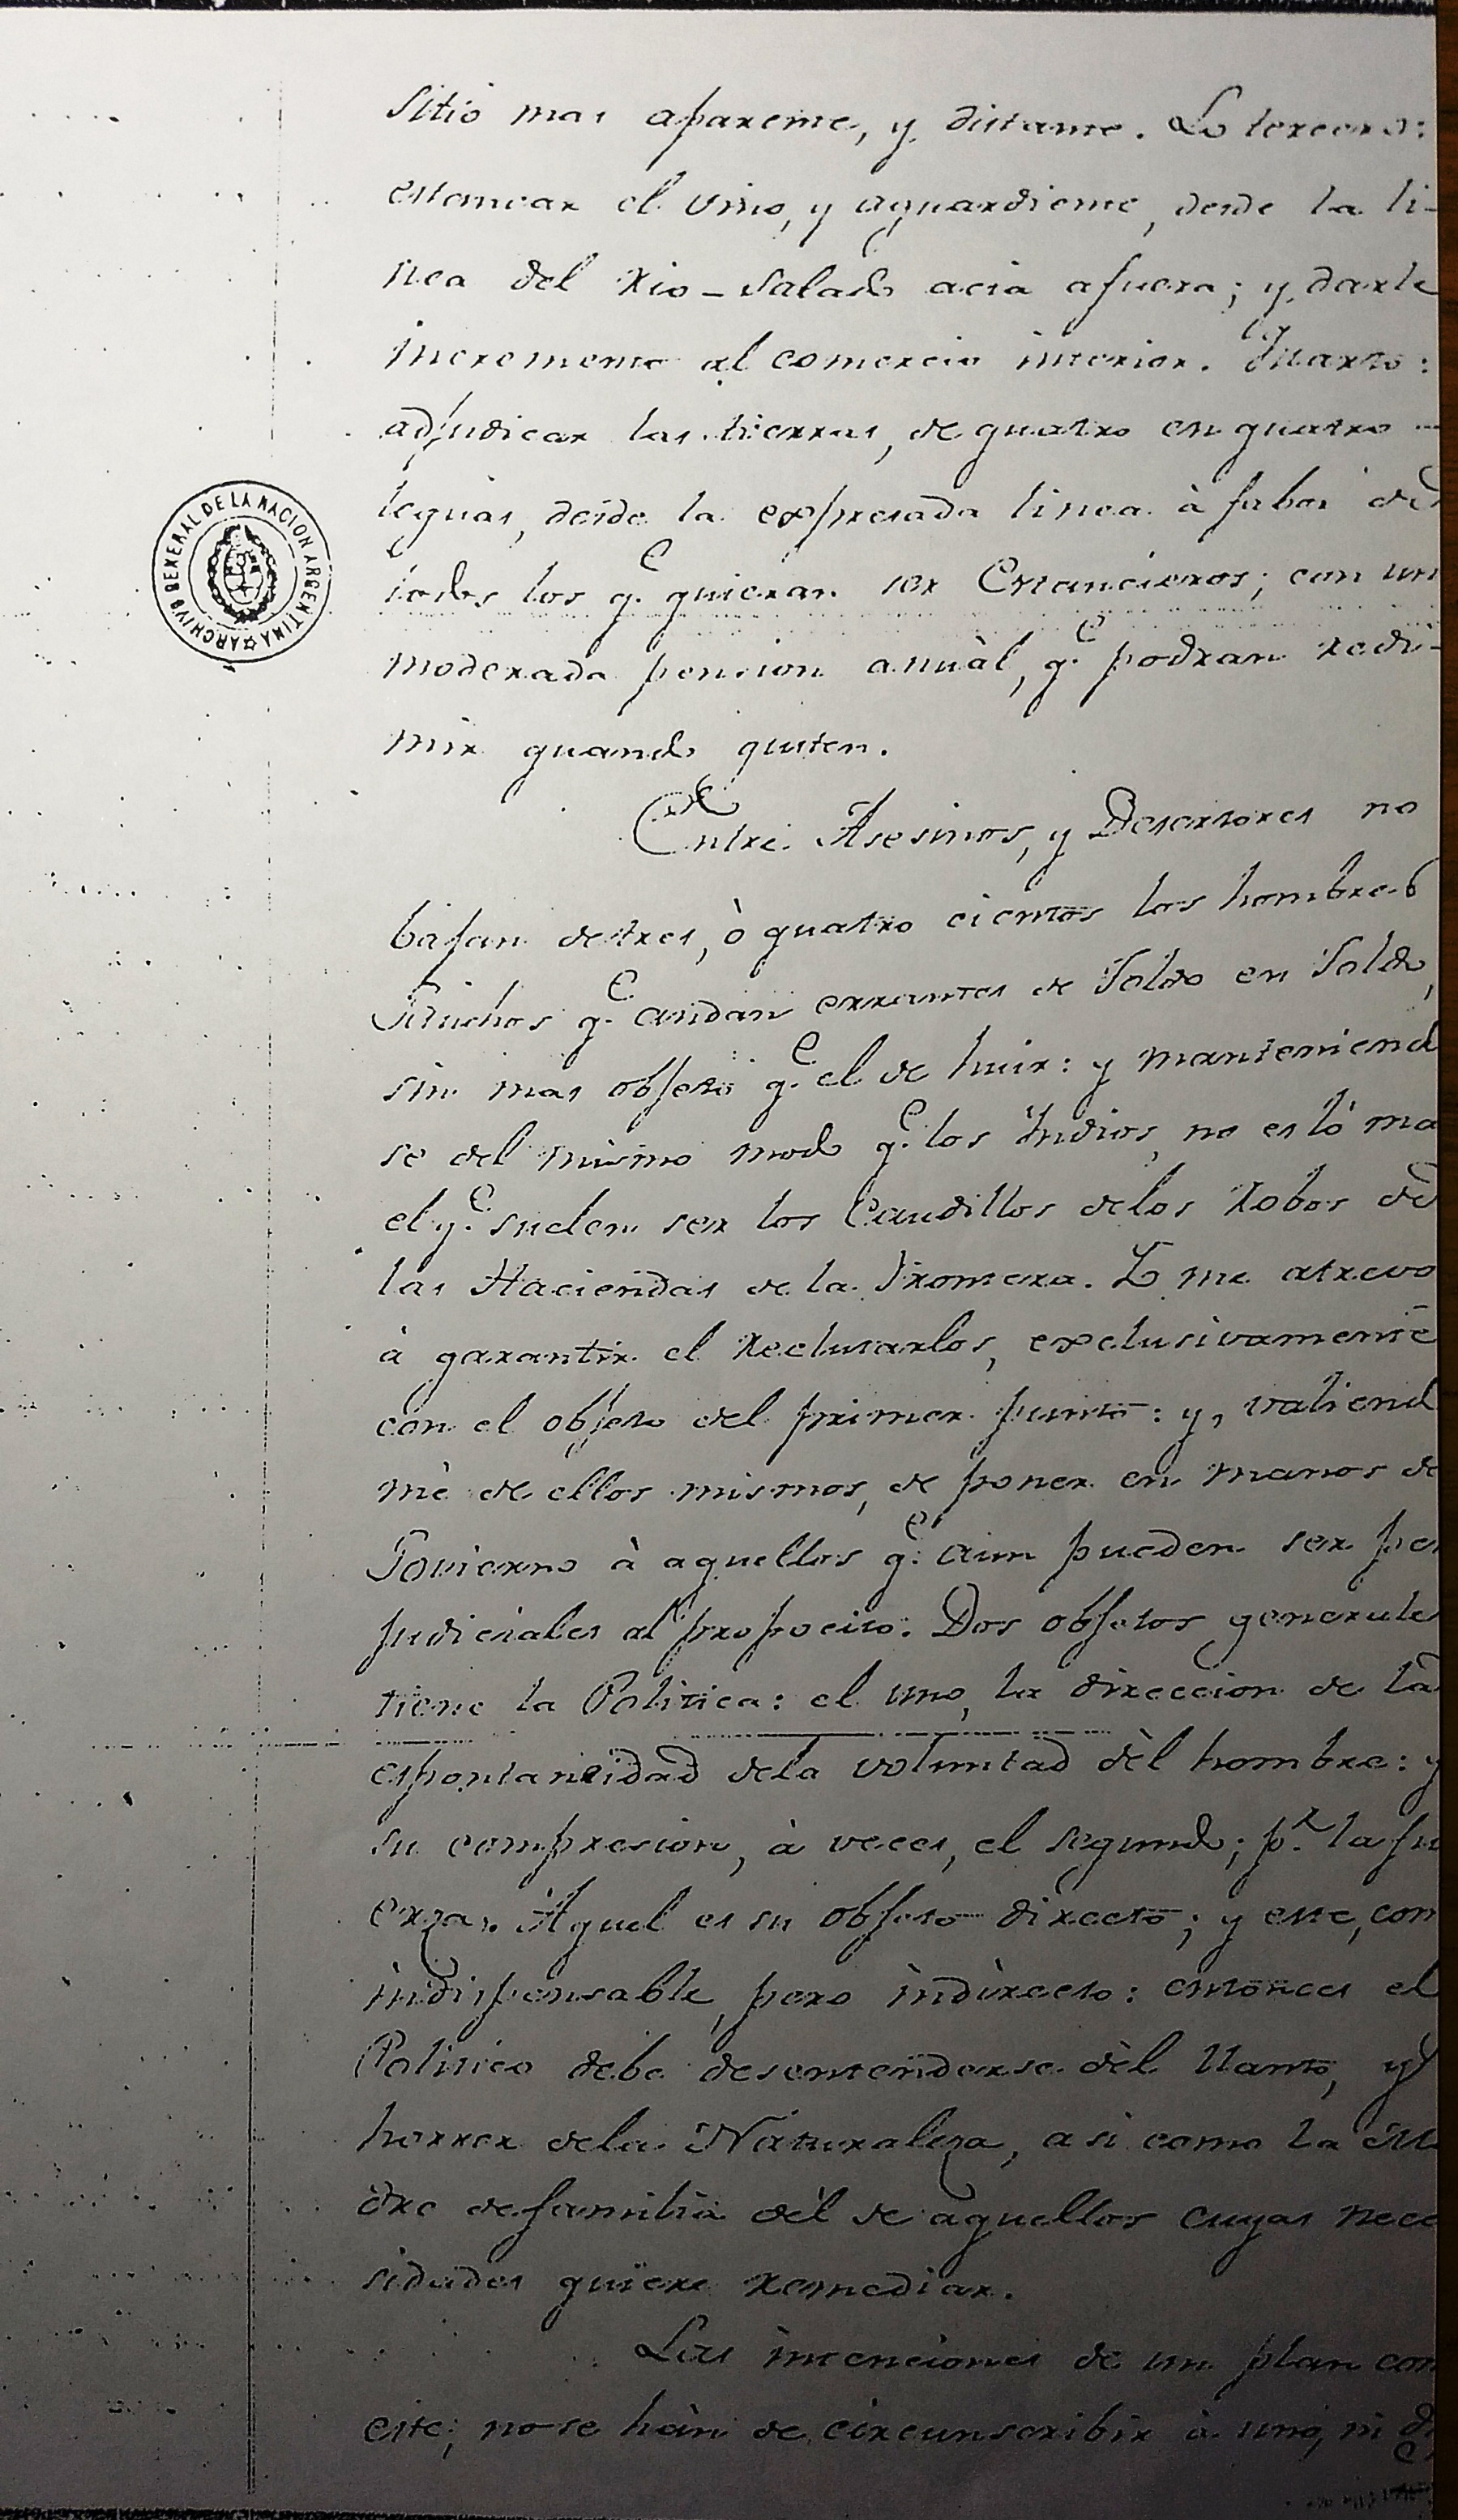 sitio mas aparente, y distante. Lo tercero:
estancar el vino, y aguardiente, desde la li-
nea del rio-Salado acia afuera; y darle
incremento al comercio interior. Quarto:
adjudicar las tierras, de quatro en quatro
leguas, desde la expresada linea à fabor de
todos los q.e quieran ser Estancieros; con un
moderada pension anuàl, q.e podran redi-
mir quando gusten.
Entre Asesinos, y Desertores no
bajan de tres, ò quatro cientos los hombres
muchos q.e andan errantes de Toldo en Toldo,
sin mas objeto q.e el de huir: y manteniend
se del mismo modo q.e los Indios, no es lo ma
el q.e suelen ser los Caudillos delos robos de
las Haciendas de la Frontera. Yo me atrevo
à garantir el reclutarlos, exclusivamente
con el objeto del primer punto: y, valiend
me de ellos mismos, de poner en manos de
Govierno à aquellos q.e aun pueden ser per
judiciales al propocito. Dos objetos generale
tiene la Politica: el uno, la direccion de la
espontaneidad dela voluntad dèl hombre: y
su compresion, à veces, el segundo; p.r la fu
erza. Aquel es su objeto directo; y este, com
indispensable, pero indirecto: entonces el
Politico debe desentenderse dèl llanto, y
horror dela Naturaleza, asi como la Ma
dre de familia dèl de aquellos cuyas nece
sidades quiere remediar.
Las intenciones de un plan com
este, no se hàn de circunscribir à uno, ni d
ARCHIVO GENERAL DE LA NACION ARGENTINA